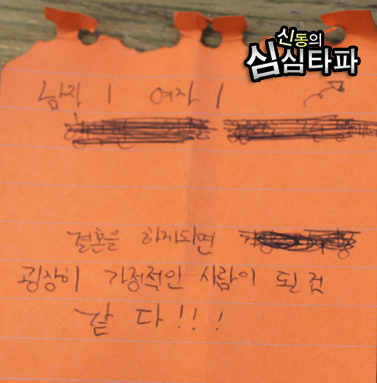 신동의
심심타파
남자 1 여자 1
결혼을 하게되면
굉장히 가정적인 사람이 될 것
같 다!!!